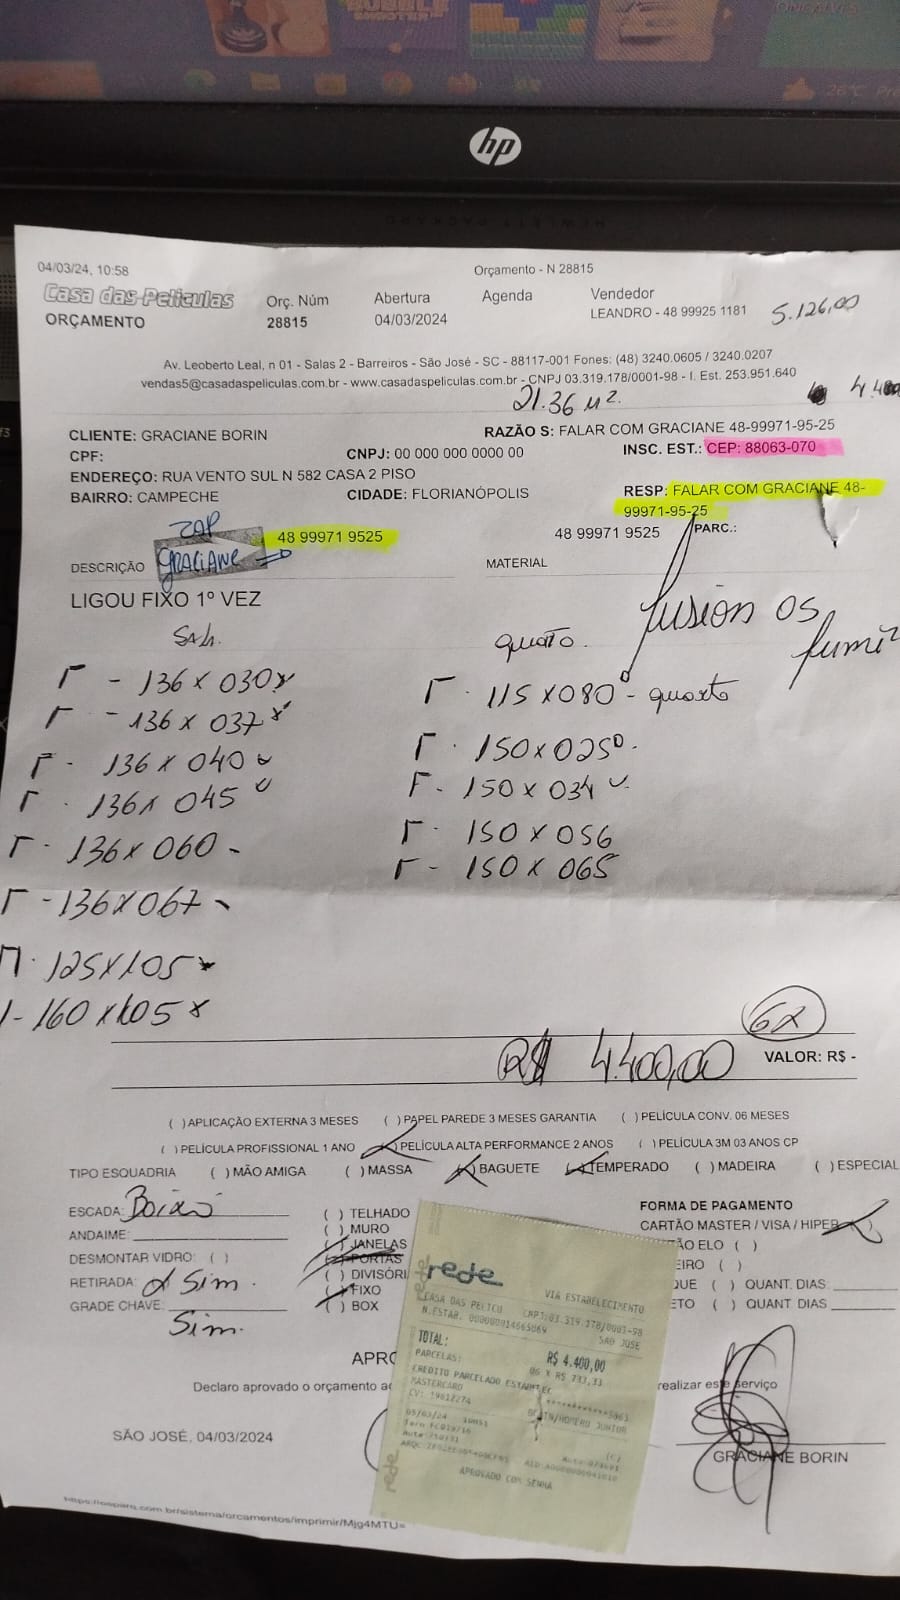 BUBBLE
SHOOTER
26°C
hp
HEWLETT PACKARD
04/03/24, 10:58
Orçamento - N 28815
Casa das Películas
ORÇAMENTO
Orç. Núm
28815
Abertura
04/03/2024
Agenda
Vendedor
LEANDRO - 48 99925 1181
5.126,00
Av. Leoberto Leal, n 01 - Salas 2 - Barreiros - São José - SC - 88117-001 Fones: (48) 3240.0605 / 3240.0207
vendas5@casadaspeliculas.com.br - www.casadaspeliculas.com.br - CNPJ 03.319.178/0001-98 - I. Est. 253.951.640
21.36 M².
CLIENTE: GRACIANE BORIN
RAZÃO S: FALAR COM GRACIANE 48-99971-95-25
CPF:
CNPJ: 00 000 000 0000 00
INSC. EST.: CEP: 88063-070
ENDEREÇO: RUA VENTO SUL N 582 CASA 2 PISO
BAIRRO: CAMPECHE
CIDADE: FLORIANÓPOLIS
RESP: FALAR COM GRACIANE 48-
99971-95-25
ZAP
GRACIANE
48 99971 9525
48 99971 9525
PARC.:
DESCRIÇÃO
MATERIAL
LIGOU FIXO 1º VEZ
fusion 05
fumê
Sala.
quarto.
- 136 x 030
115 x 080 - quarto
- 136 x 037
150 x 025
- 136 x 040
150 x 034
136 x 045
150 x 056
136 x 060 -
150 x 065
- 136 x 067
125 x 105
1 - 160 x 105
6x
R$ 4.400,00
VALOR: R$ -
( ) APLICAÇÃO EXTERNA 3 MESES ( ) PAPEL PAREDE 3 MESES GARANTIA ( ) PELÍCULA CONV. 06 MESES
( ) PELÍCULA PROFISSIONAL 1 ANO ( ) PELÍCULA ALTA PERFORMANCE 2 ANOS ( ) PELÍCULA 3M 03 ANOS CP
TIPO ESQUADRIA ( ) MÃO AMIGA ( ) MASSA ( ) BAGUETE ( ) TEMPERADO ( ) MADEIRA ( ) ESPECIAL
ESCADA:
ANDAIME:
DESMONTAR VIDRO: ( )
RETIRADA: Sim.
GRADE CHAVE:
Sim.
( ) TELHADO
( ) MURO
( ) JANELAS
( ) PORTAS
( ) DIVISÓRI
( ) FIXO
( ) BOX
FORMA DE PAGAMENTO
CARTÃO MASTER / VISA / HIPER
ÃO ELO ( )
EIRO ( )
QUE ( ) QUANT. DIAS
ETO ( ) QUANT. DIAS
rede
VIA ESTABELECIMENTO
CASA DAS PELICU CNPJ:03.319.178/0001-98
SAO JOSE
TOTAL: R$ 4.400,00
PARCELAS: 06 X R$ 733,33
CREDITO PARCELADO ESTABELEC
MASTERCARD
05/03/24
APROVADO COM SENHA
rede
APRO
Declaro aprovado o orçamento ac
realizar este serviço
SÃO JOSÉ, 04/03/2024
GRACIANE BORIN
https://osparq.com.br/sistema/orcamentos/imprimir/Mjg4MTU=